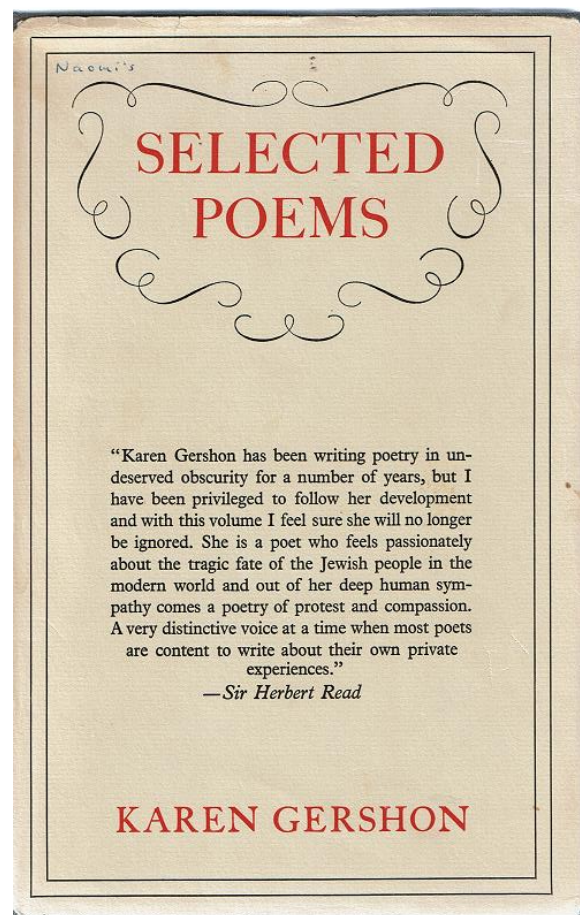 Naomi's
SELECTED
POEMS
“Karen Gershon has been writing poetry in un-
deserved obscurity for a number of years, but I
have been privileged to follow her development
and with this volume I feel sure she will no longer
be ignored. She is a poet who feels passionately
about the tragic fate of the Jewish people in the
modern world and out of her deep human sym-
pathy comes a poetry of protest and compassion.
A very distinctive voice at a time when most poets
are content to write about their own private
experiences.”
—Sir Herbert Read
KAREN GERSHON